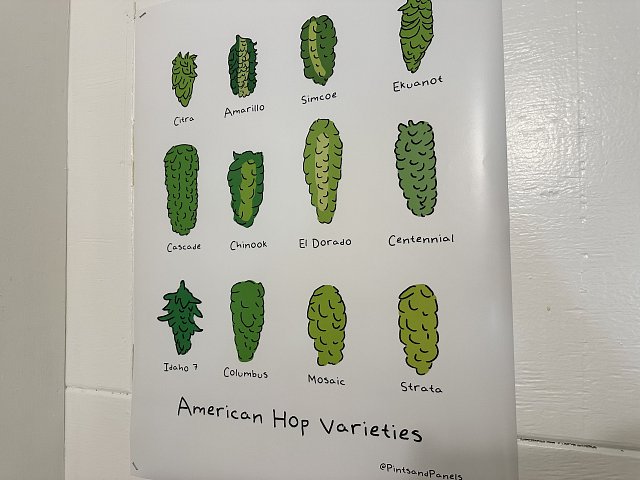 Citra
Amarillo
Simcoe
Ekuanot
Cascade
Chinook
El Dorado
Centennial
Idaho 7
Columbus
Mosaic
Strata
American Hop Varieties
@PintsandPanels